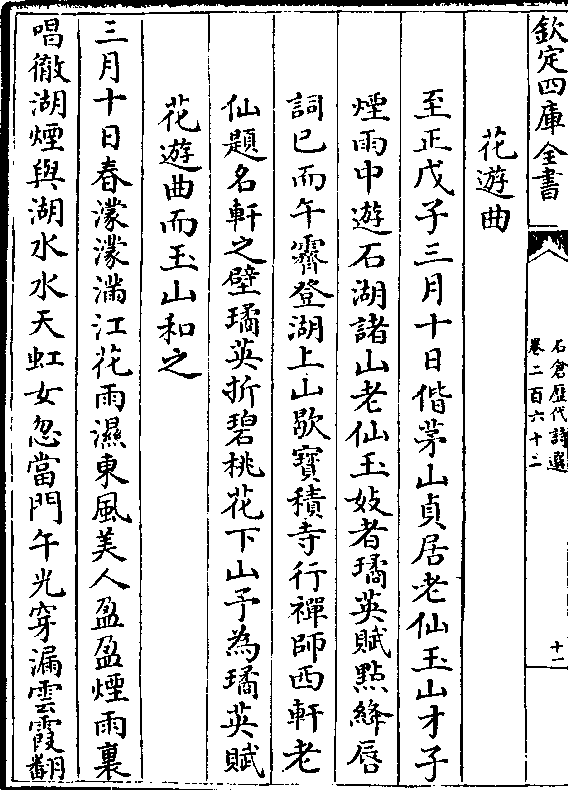 欽定四庫全書
石倉歷代詩選
卷二百六十二
十二
花遊曲
至正戊子三月十日偕茅山貞居老仙玉山才子
煙雨中遊石湖諸山老仙玉妓者璚英賦點絳唇
詞已而午霽登湖上山歇寶積寺行禪師西軒老
仙題名軒之壁璚英折碧桃花下山予為璚英賦
花遊曲而玉山和之
三月十日春濛濛滿江花雨濕東風美人盈盈煙雨裏
唱徹湖煙與湖水水天虹女忽當門午光穿漏雲霞翻